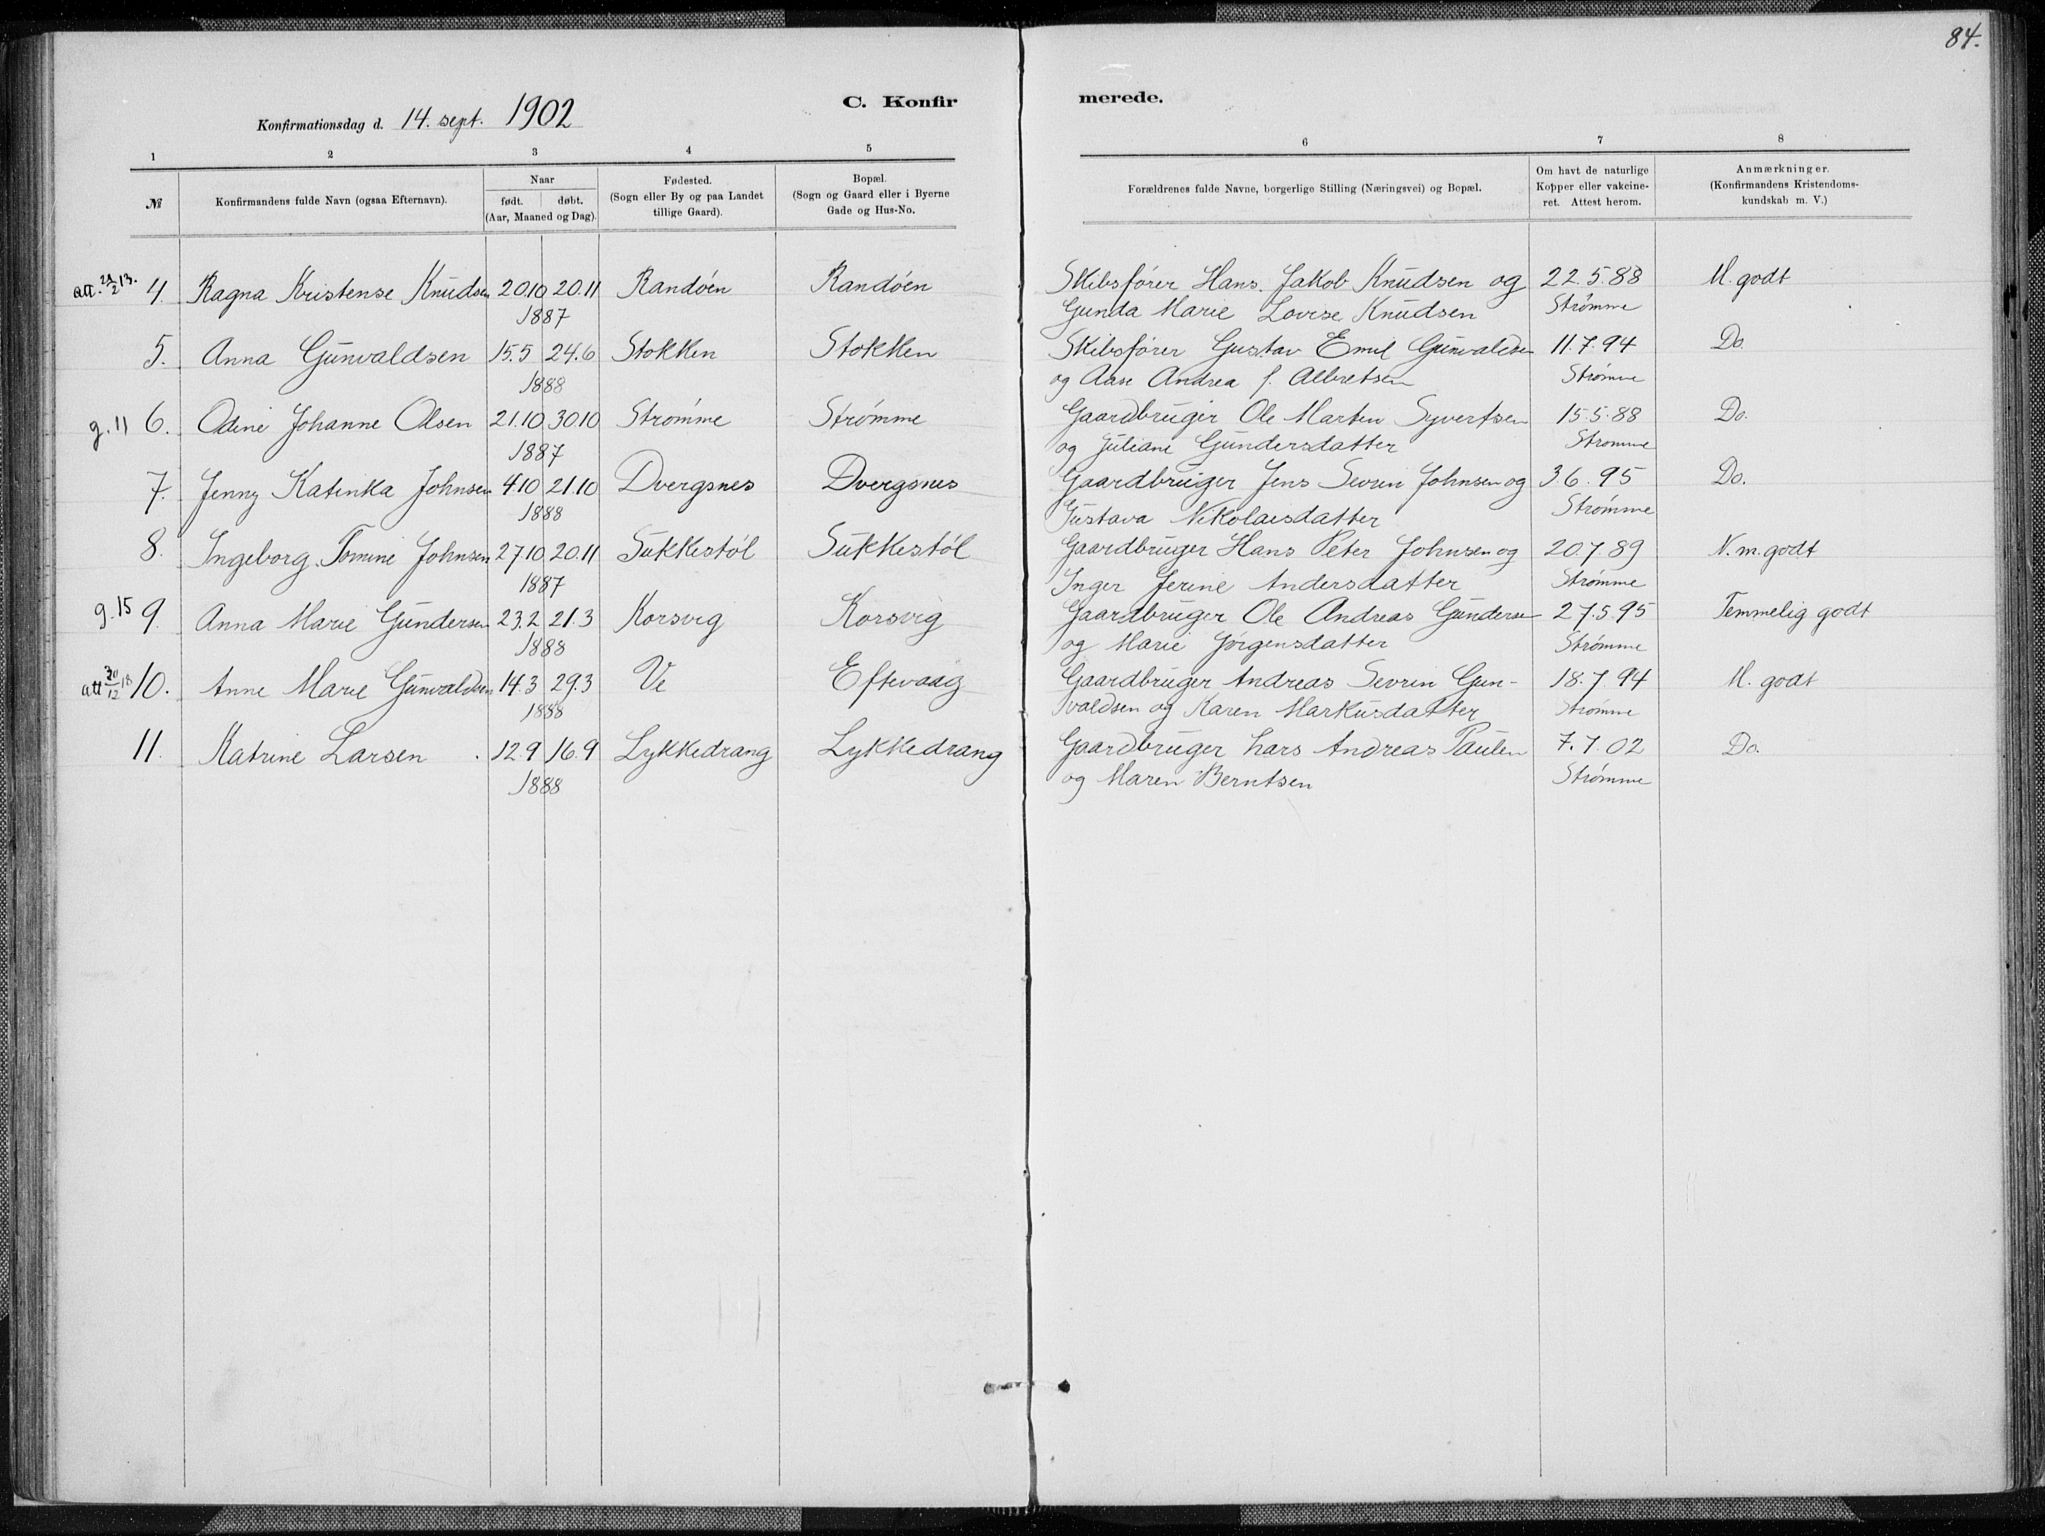 84.
C. Konfirmerede.
Konfirmationsdag d. 14. sept. 1902
1 2 3 4 5 6 7 8
№ Konfirmandens fulde Navn (ogsaa Efternavn). Naar født. døbt. (Aar, Maaned og Dag). Fødested. (Sogn eller By og paa Landet tillige Gaard). Bopæl. (Sogn og Gaard eller i Byerne Gade og Hus-No. Forældrenes fulde Navne, borgerlige Stilling (Næringsvei) og Bopæl. Om havt de naturlige Kopper eller vakcineret. Attest herom. Anmærkninger. (Konfirmandens Kristendomskundskab m. V.)
att. 13. 4. Ragna Kristense Knudsen 20.10 20.11 Randøen Randøen Skibsfører Hans Jakob Knudsen og 22.5.88 M. godt
1887 Gunda Marie Lovise Knudsen Strømme
5. Anna Gunvaldsen 15.5 24.6 Stokken Stokken Skibsfører Gustav Emil Gunvaldsen 11.7.94 Do.
1888 og Aase Andrea f. Albretsen Strømme
g. 11 6. Odine Johanne Olsen 21.10 30.10 Strømme Strømme Gaardbruger Ole Martin Syvertsen 15.5.88 Do.
1887 og Juliane Gundersdatter Strømme
7. Jenny Katinka Johnsen 4.10 21.10 Dvergsnes Dvergsnes Gaardbruger Jens Severin Johnsen og 3.6.95 Do.
1888 Gustava Nikolaisdatter Strømme
8. Ingeborg Tomine Johnsen 27.10 20.11 Sukkestøl Sukkestøl Gaardbruger Hans Peter Johnsen og 20.7.89 N. m. godt
1887 Inger Jerine Andersdatter Strømme
g. 15 9. Anna Marie Gundersen 23.2 21.3 Korsvig Korsvig Gaardbruger Ole Andreas Gundersen 27.5.95 Temmelig godt
1888 og Marie Jørgensdatter Strømme
att 18 10. Anne Marie Gunvaldsen 14.3 29.3 Ve Eftevaag Gaardbruger Andreas Sevrin Gun- 18.7.94 M. godt
1888 valdsen og Karen Markusdatter Strømme
11. Katrine Larsen 12.9 16.9 Lykkedrang Lykkedrang Gaardbruger Lars Andreas Paulsen 7.7.02 Do.
1888 og Maren Berntsen Strømme